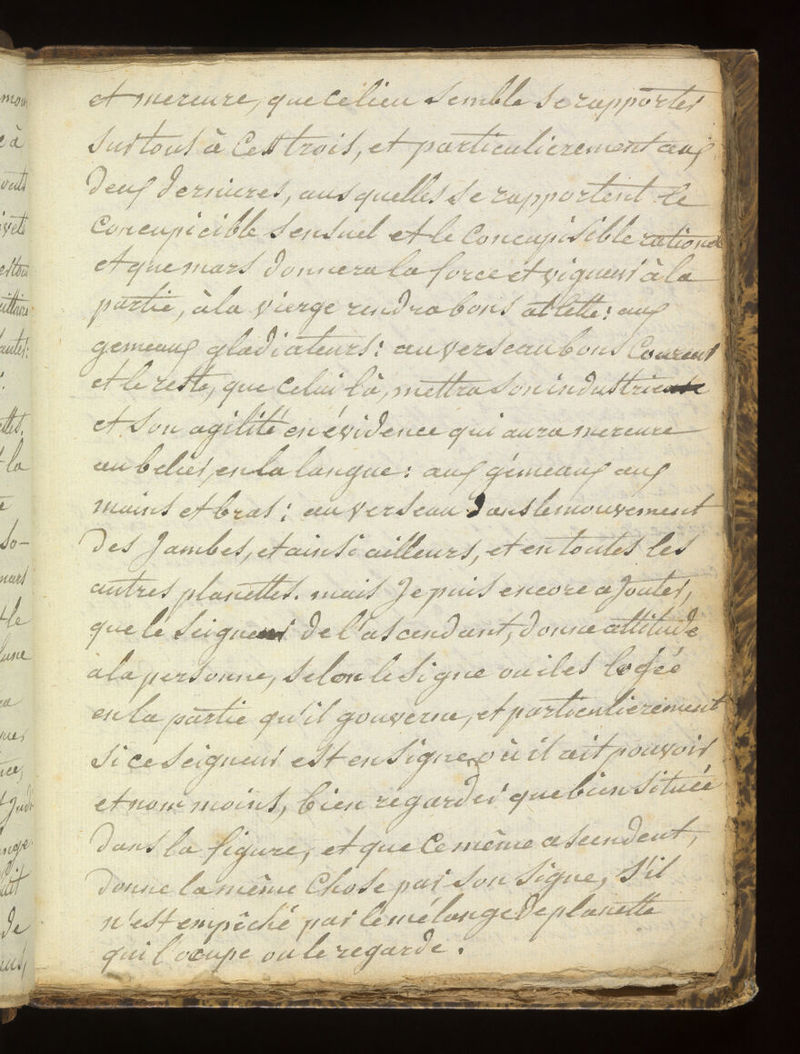 et mercure, que ce lieu semble se rapporter
surtous à ces trois, et particulierement aux
deux dernieres, ausquelles se rapportent le
concupicible sensuel et le concupisible rationel
et que mars donnera la force et vigueur à la
partie, à la vierge rendra bons atlette: aux
gemeaux gladiateurs: au verseau bons coureur
et le reste, que celui là, mettra son industrie
et son agilité en évidence qui aura mercure
au belier, en la langue: aux gémeaux aux
mains et bras: au verseau dans le mouvement
des Jambes, et ainsi ailleurs, et en toutes les
autres planettes. mais Je puis encore aJouter,
que le seigneur de l'ascendant, donne attitude
à la personne, selon le signe ou il es logée
en la partie qu'il gouverne, et particulierement
si ce seigneur est en signe où il ait pouvoir
et non moins, bien regarder que bien située
dans la figure, et que ce même ascendent,
donne la même chose par son signe, s'il
n'est empêché par le mélange de planette
qui l'ocupe ou le regarde.